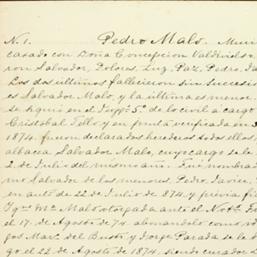 N. 1. Pedro Malo. Muri
casado con Doña Concepcion Valdivielso
ron Salvador, Dolores, Luz, Paz, Pedro, Ja
Los dos últimos fallecieron sin sucesio
es Salvador Malo, y la última es menor
se aqui en el Juzgº 5º de lo civil a cargo
Cristobal y en junta verificada en 3
1874. fueron declarados herederos todos ellos
albacea Salvador Malo, cuyo cargo se le
2 de Julio del mismo año. Fué nombrad
mo Salvador de los menores, Pedro, Javier,
en auto de 22 de Julio de 874, y previa fi
Igº Mª Malo otorgada ante el Notº
el 17 de Agosto de 74 abonandolo como
gos Marº del Busti y Jorge Parada se le d
go el 22 de Agosto de 1874, siendo curador